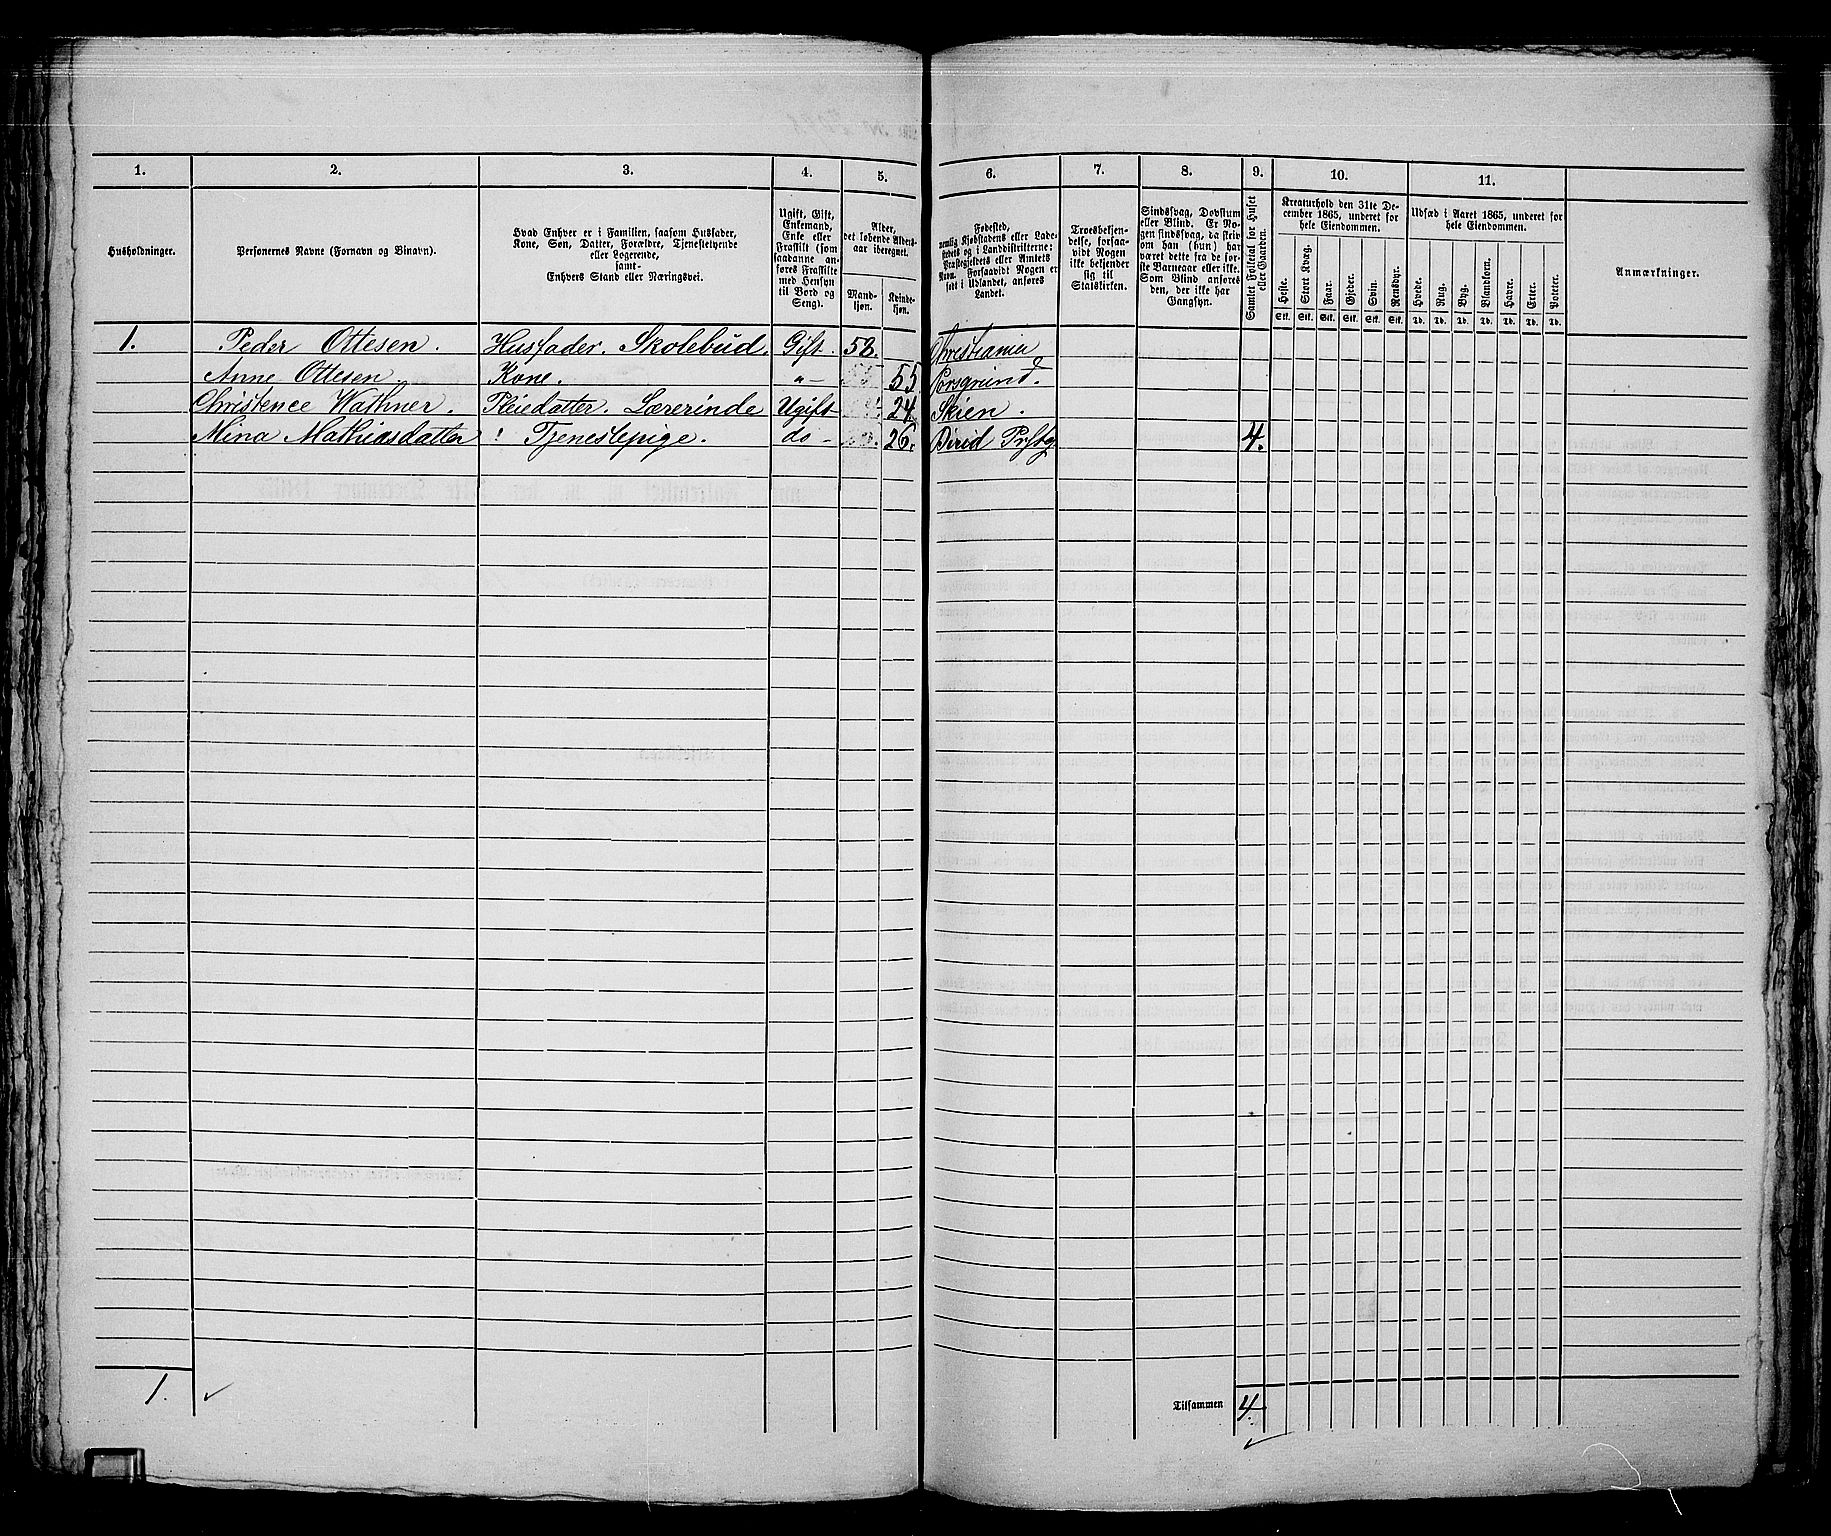 1. 2. 3. 4. 5. 6. 7. 8. 9. 10. 11.
Husholdninger.
Personernes Navne (Fornavn og Binavn).
Hvad Enhver er i Familien, saasom Husfader,
Kone, Søn, Datter, Forældre, Tjenestetyende
eller Logerende,
samt
Enhvers Stand eller Næringsvei.
Ugift, Gift,
Enkemand,
Enke eller
Fraskilt (som
saadanne an-
føres Fraskilte
med Hensyn
til Bord og
Seng).
Alder,
det løbende Alders-
aar iberegnet.
Mand-
kjøn.
Kvinde-
kjøn.
Fødested,
nemlig Kjøbstadens eller Lade-
stedets og i Landdistrikterne:
Præstegjeldets eller Amtets
Navn. Forsaavidt Nogen er
født i Udlandet, anføres
Landet.
Troesbekjen-
delse, forsaa-
vidt Nogen
ikke bekjender
sig til
Statskirken.
Sindssvag, Døvstum
eller Blind. Er No-
gen sindssvag, da skriv
om han (hun) har
været dette fra de før-
ste Barneaar eller ikke.
Som Blind anføres
den, der ikke har
Gangsyn.
Samlet Folketal for Huset
eller Gaarden.
Kreaturhold den 31te De-
cember 1865, underet for
hele Eiendommen.
Heste. Stort Kvæg. Faar. Gjeder. Svin. Rensdyr.
Stk. Stk. Stk. Stk. Stk. Stk.
Udsæd i Aaret 1865, underet for
hele Eiendommen.
Hvede. Rug. Byg. Blandkorn. Havre. Erter. Poteter.
Td. Td. Td. Td. Td. Td. Td.
Anmærkninger.
1. Peder Ottesen. Husfader. Skolebud. Gift. 58. Christiania
Anne Ottesen Kone. "– 55 Porsgrund.
Christence Wathner. Pleiedatter. Lærerinde Ugift 24 Skien.
Mina Mathiasdatter Tjenestepige. do – 26. Birid Prstg 4.
1.
Tilsammen 4.